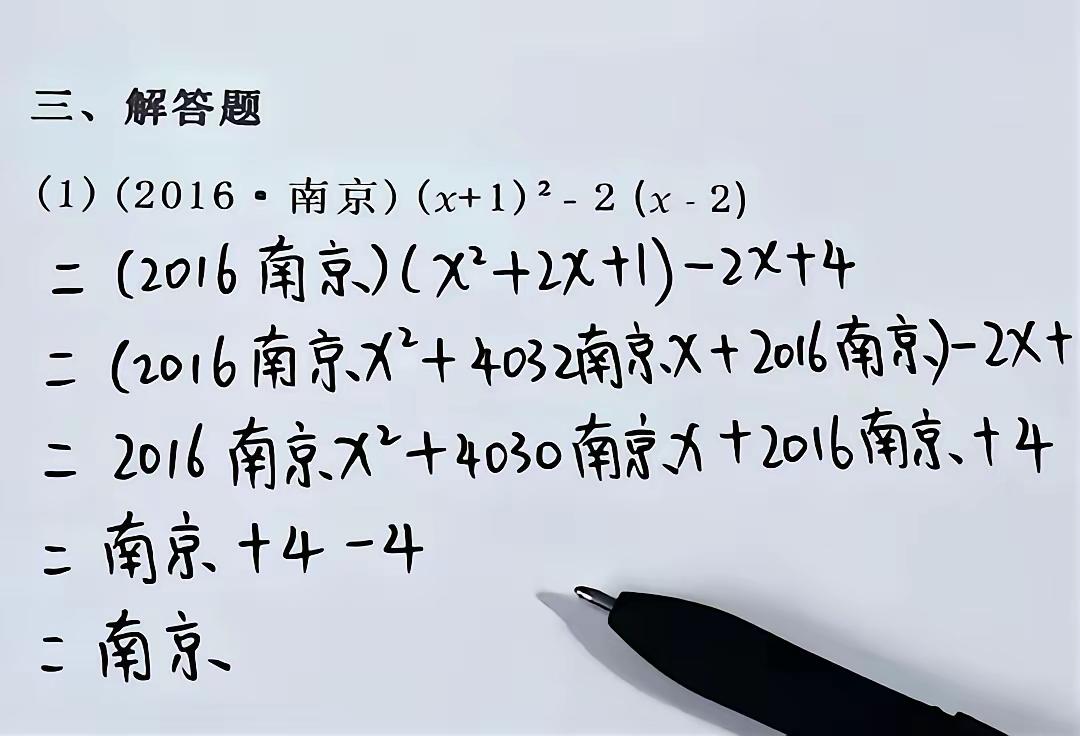 三、解答题
(1)(2016·南京)(x+1)²-2(x-2)
=(2016南京)(x²+2x+1)-2x+4
=(2016南京x²+4032南京x+2016南京)-2x+
=2016南京x²+4030南京x+2016南京+4
=南京+4-4
=南京